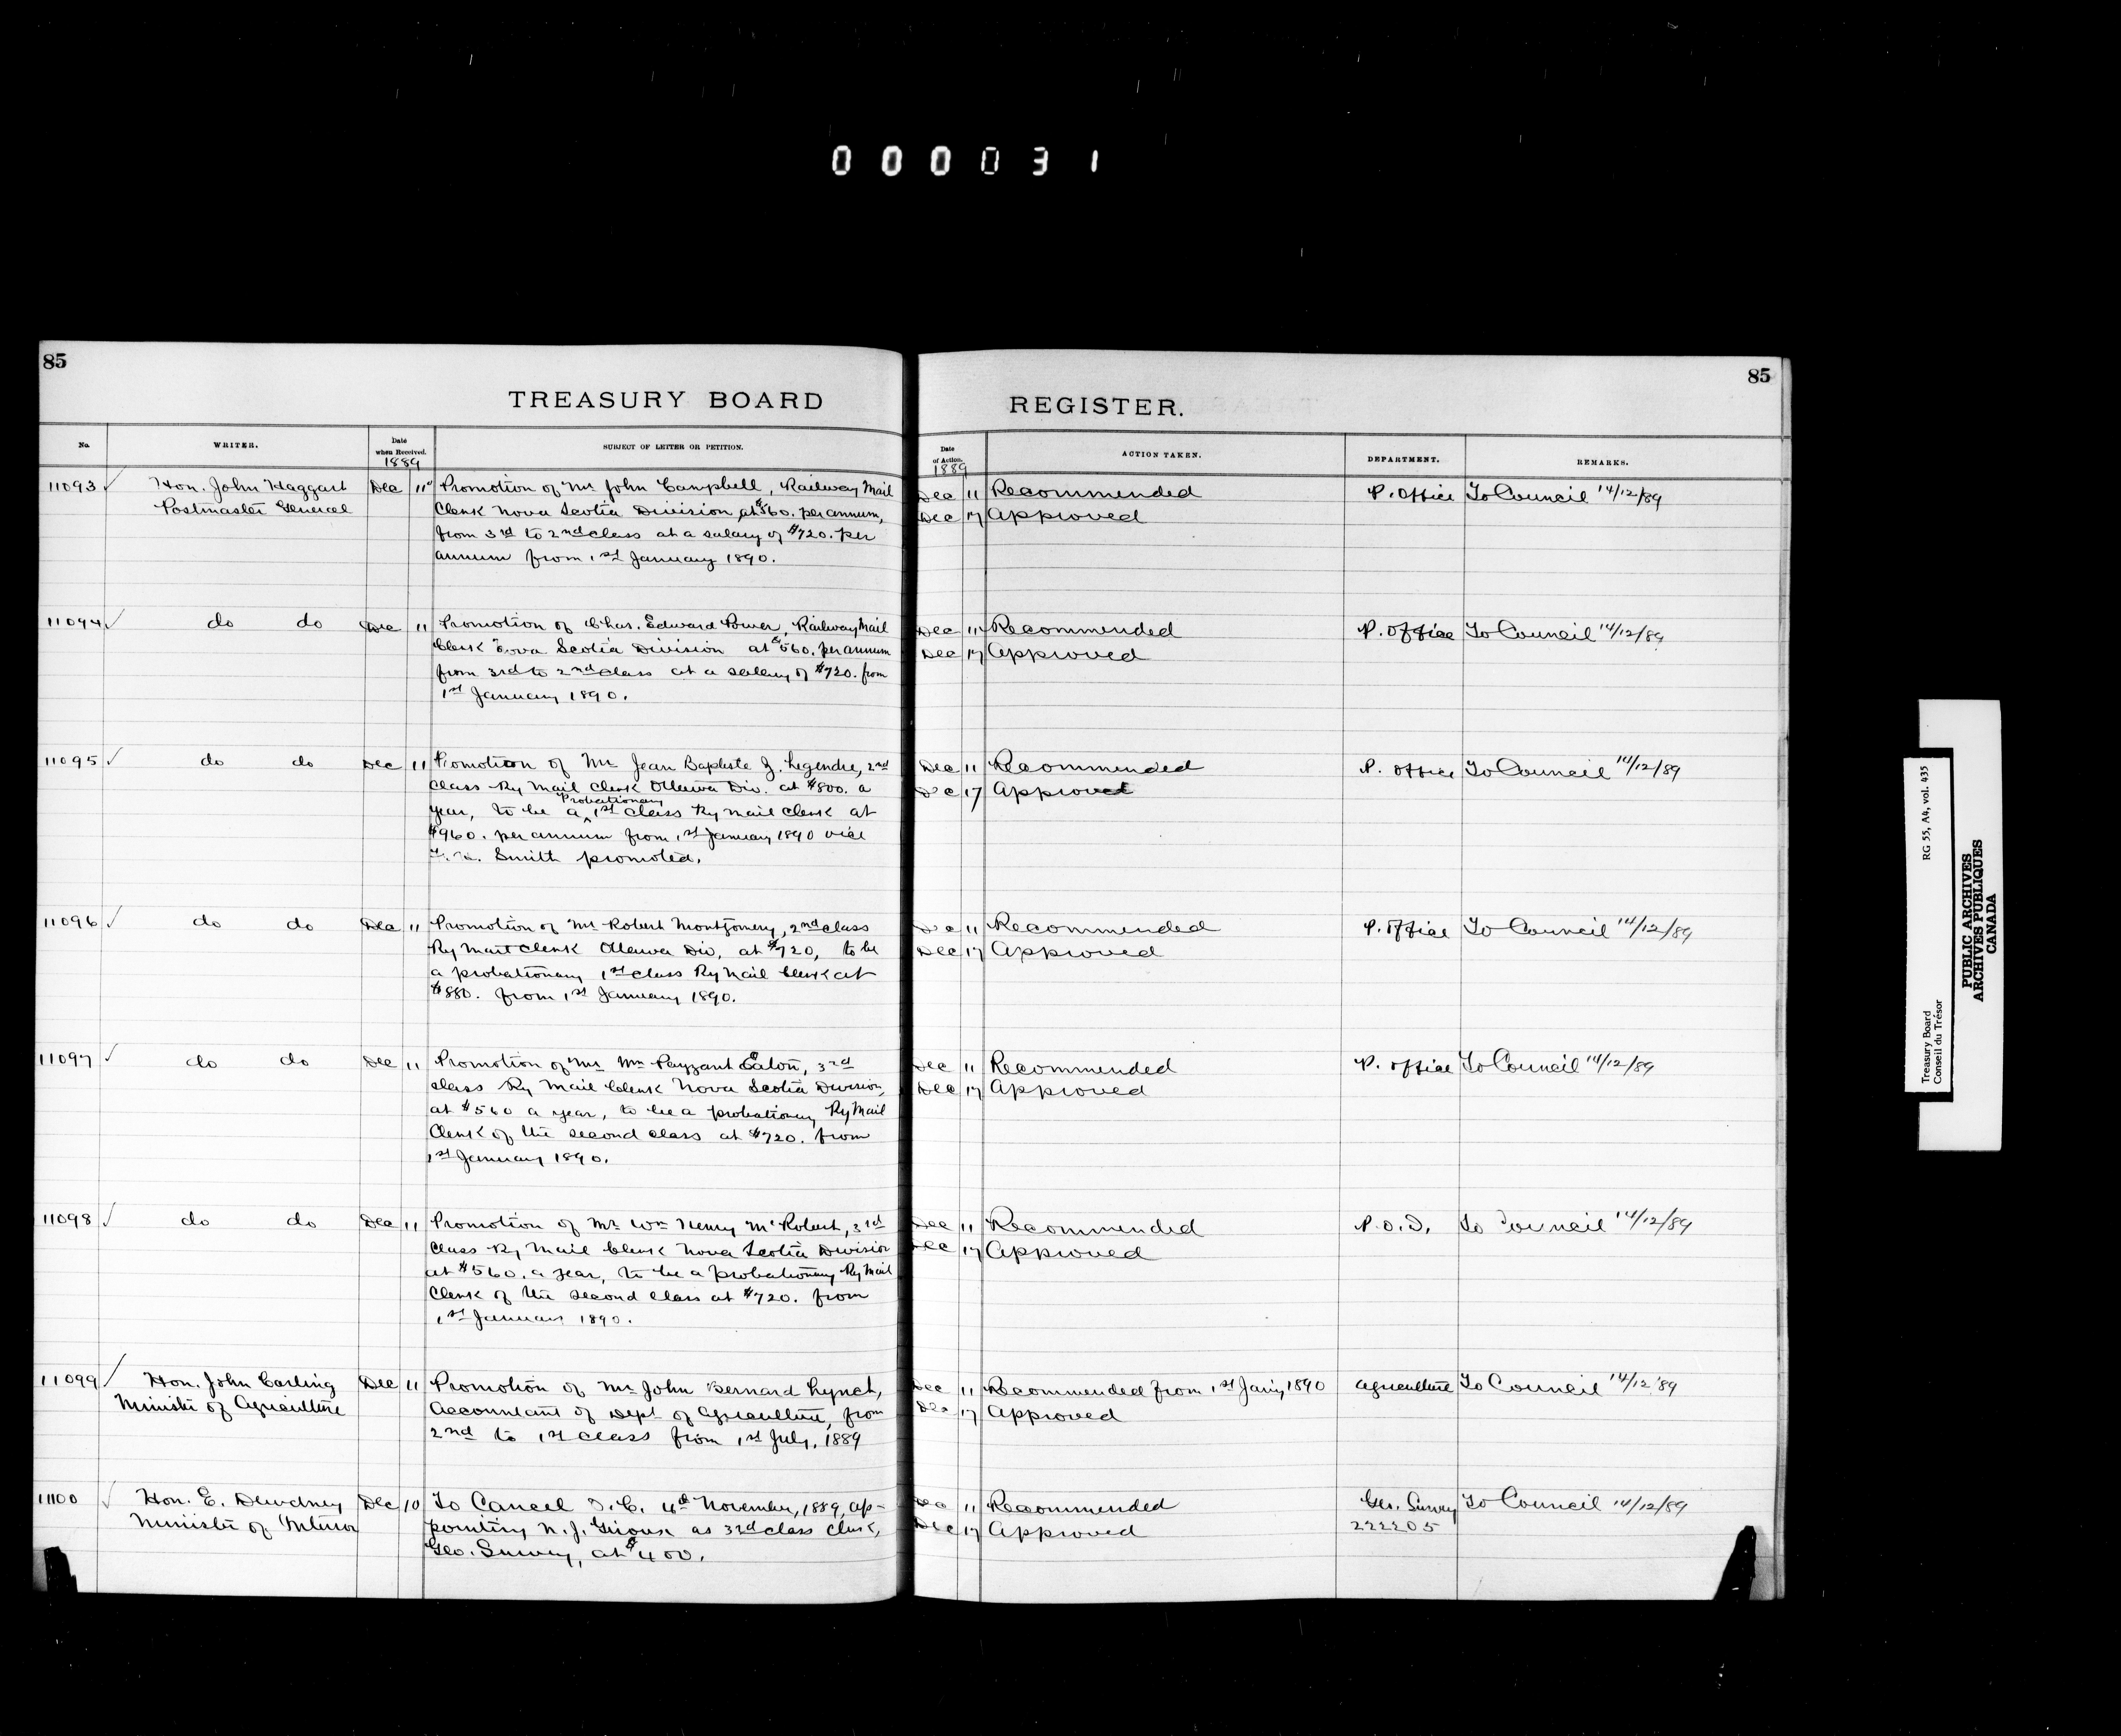 000031
85
TREASURY BOARD
No.
WRITER.
Date when Received.
1889
SUBJECT OF LETTER OR PETITION.
11093 ✓ Hon. John Haggart Dec 11 Promotion of Mr John Campbell, Railway Mail
Postmaster General Clerk Nova Scotia Division at $560. per annum,
from 3rd to 2nd class at a salary of $720. per
annum from 1st January 1890.
11094 ✓ do do Dec 11 Promotion of Chas. Edward Power, Railway Mail
Clerk Nova Scotia Division at $560. per annum
from 3rd to 2nd class at a salary of $720. from
1st January 1890.
11095 ✓ do do Dec 11 Promotion of Mr Jean Baptiste Z. Legendre, 2nd
Class Ry Mail Clerk Ottawa Div. at $800. a
Probationary
year, to be a ^ 1st Class Ry Mail Clerk at
$960. per annum from 1st January 1890 vice
Smith promoted.
11096 ✓ do do Dec 11 Promotion of Mr Robert Montgomery, 2nd class
Ry Mail Clerk Ottawa Div, at $720, to be
a probationary 1st class Ry Mail Clerk at
$880. from 1st January 1890.
11097 ✓ do do Dec 11 Promotion of Mr Wm Payzant Eaton, 3rd
class Ry Mail Clerk Nova Scotia Division,
at $560 a year, to be a probationary Ry Mail
Clerk of the second class at $720. from
1st January 1890.
11098 ✓ do do Dec 11 Promotion of Mr Wm Henry McRobert, 3rd
Class Ry Mail Clerk Nova Scotia Division
at $560. a year, to be a probationary Ry Mail
Clerk of the second class at $720. from
1st January 1890.
11099 ✓ Hon. John Carling Dec 11 Promotion of Mr John Bernard Lynch,
Minister of Agriculture Accountant of Dept of Agriculture, from
2nd to 1st class from 1st July, 1889
11100 ✓ Hon. E. Dewdney Dec 10 To Cancel O.C. 4th November, 1889, ap-
Minister of Interior pointing N. J. as 3rd class Clerk,
Geo. Survey, at $400.
85
REGISTER.
Date of Action.
1889
ACTION TAKEN.
DEPARTMENT.
REMARKS.
Dec 11 Recommended P. Office To Council 14/12/89
Dec 17 Approved
Dec 11 Recommended P. Office To Council 14/12/89
Dec 17 Approved
Dec 11 Recommended P. Office To Council 14/12/89
Dec 17 Approved
Dec 11 Recommended P. Office To Council 14/12/89
Dec 17 Approved
Dec 11 Recommended P. Office To Council 14/12/89
Dec 17 Approved
Dec 11 Recommended P.O.D. To Council 14/12/89
Dec 17 Approved
Dec 11 Recommended from 1st Jan'y 1890 Agriculture To Council 14/12/89
Dec 17 Approved
Dec 11 Recommended Geo. Survey To Council 14/12/89
Dec 17 Approved 222205
Treasury Board RG 55, A4, vol. 435
Conseil du Trésor
PUBLIC ARCHIVES
ARCHIVES PUBLIQUES
CANADA